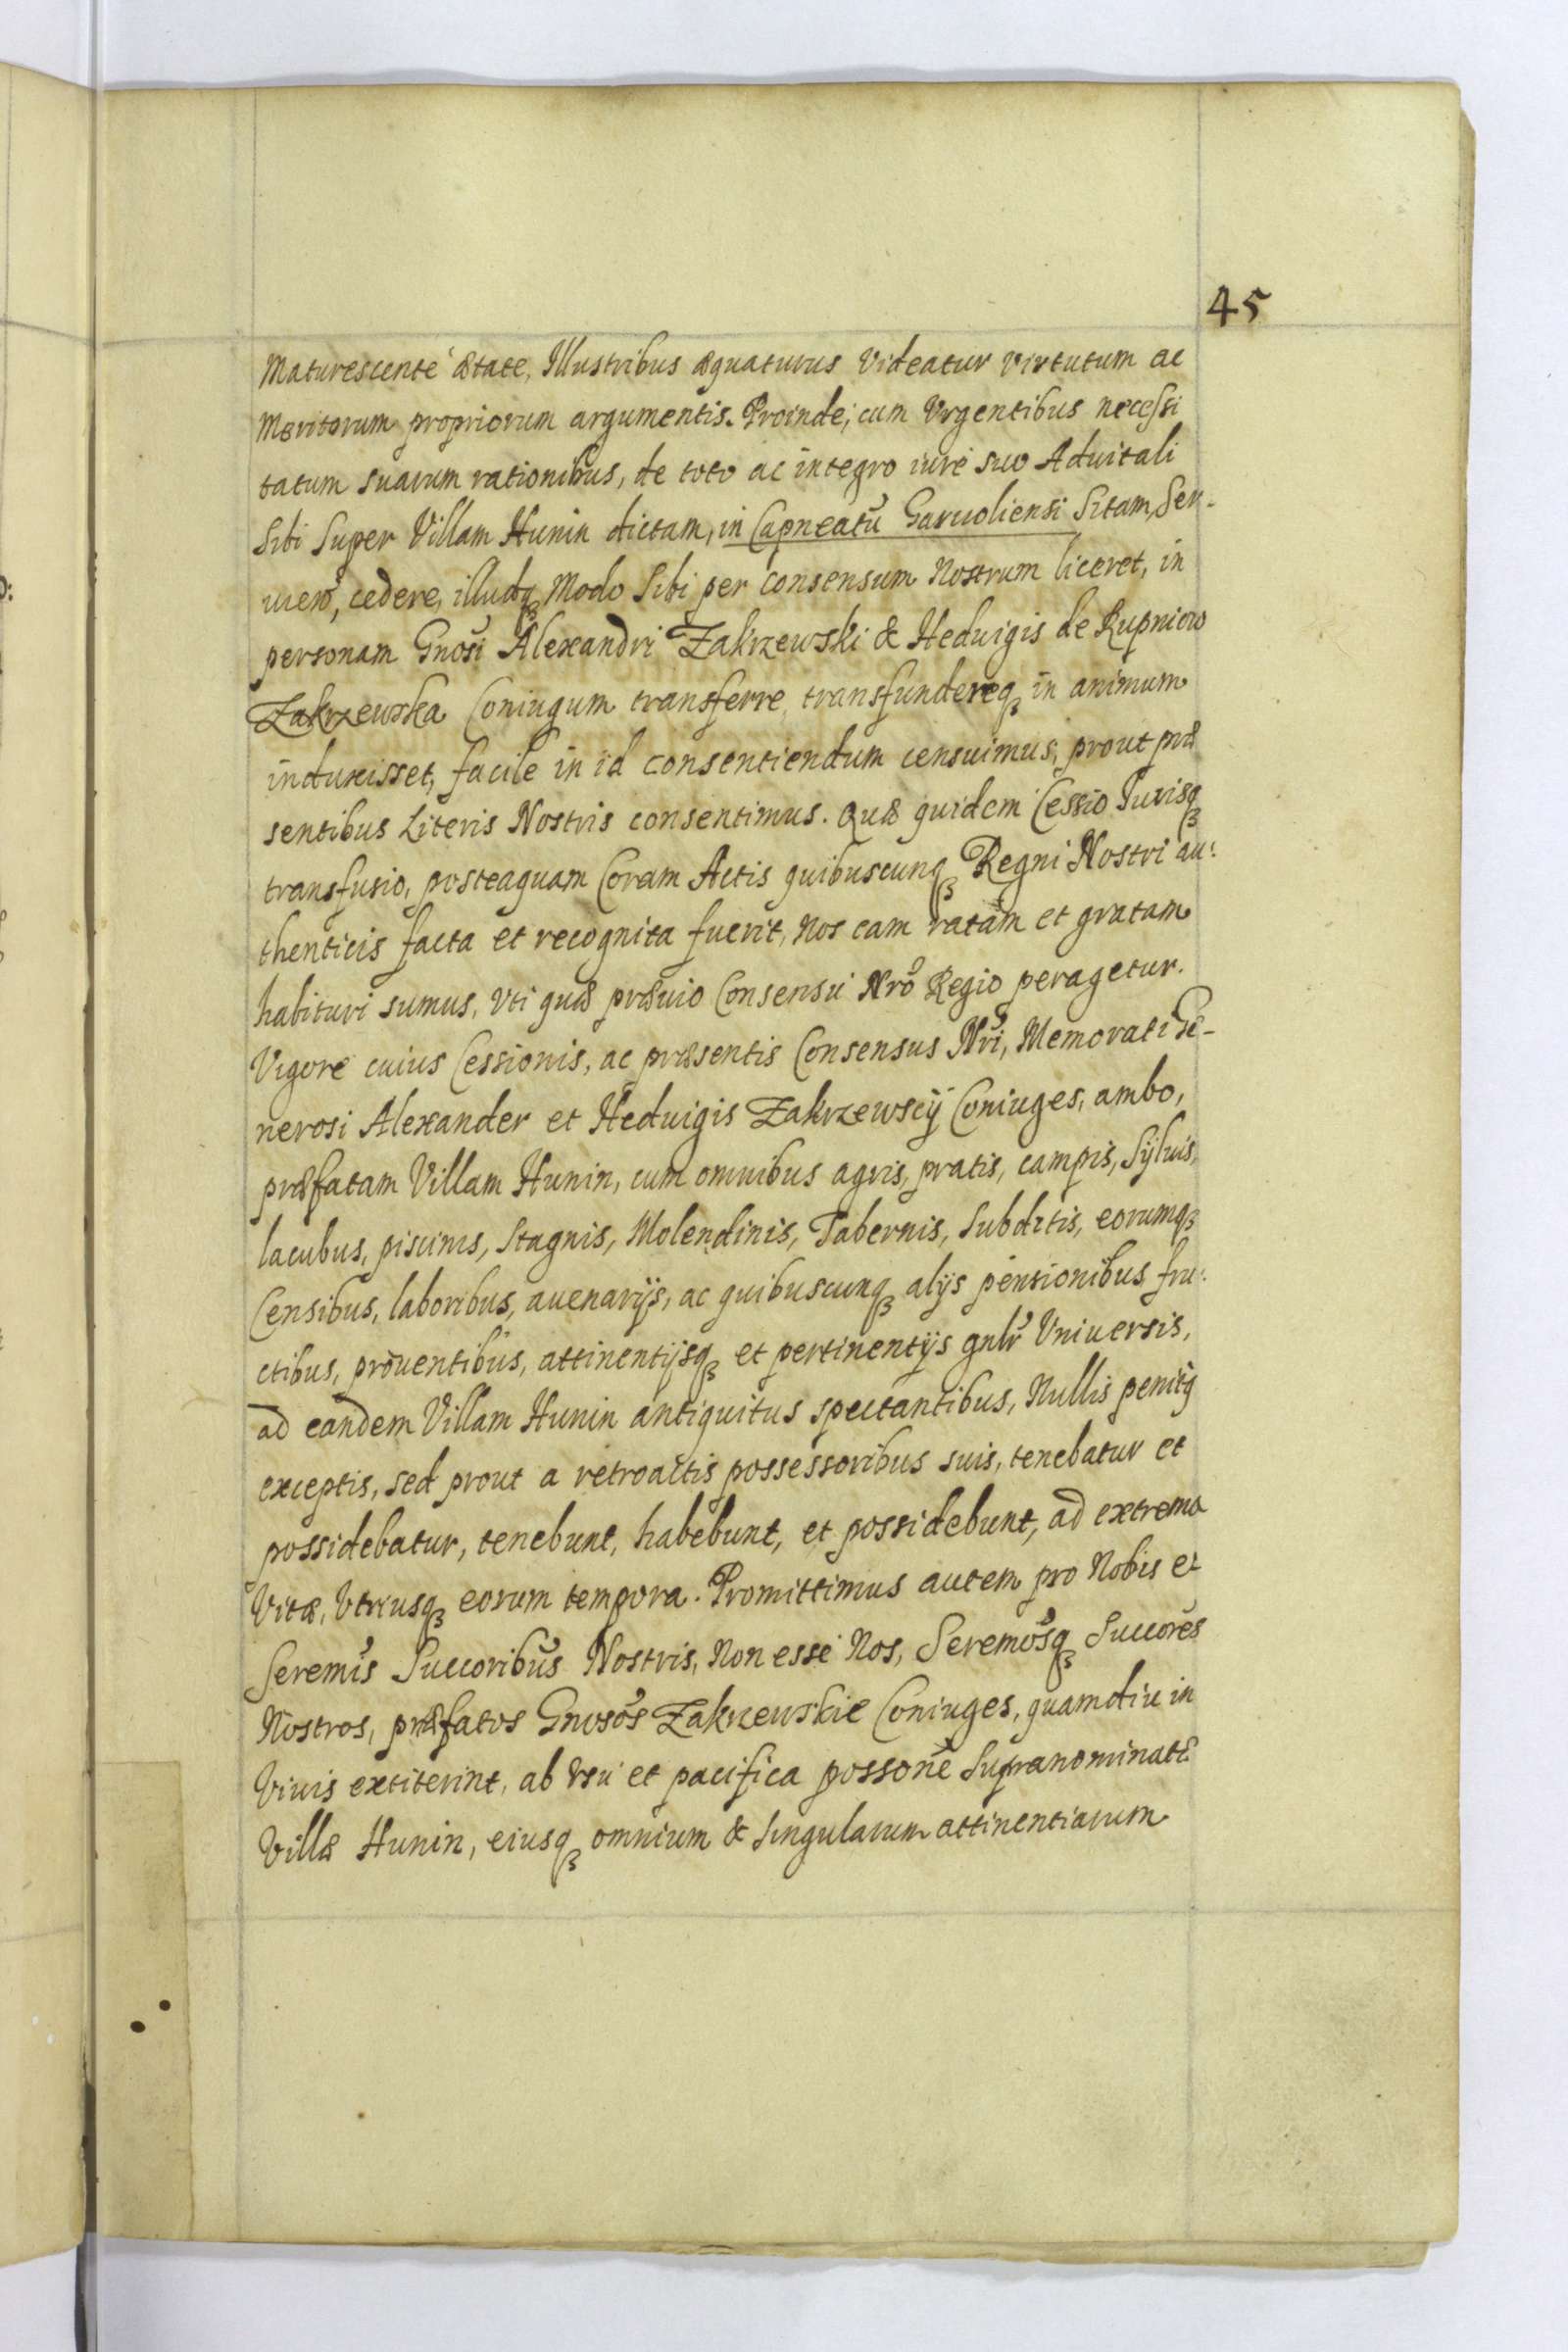 45
Maturescente ætate, Illustribus æquaturus Videatur virtutum ac
Meritorum propriorum argumentis. Proinde, cum Vrgentibus necessi
tatum suarum rationibus, de toto ac integro iure suo Aduitali
Sibi Super Villam Hunin dictam, in Capneatũ Garuoliensi Sitam, Ser-
uien, cedere, illudq₃ Modo Sibi per consensum Nostrum liceret, in
personam Gnosi Alexandri Zakrzewski & Heduigis de Rupniow
Zakrzewska Coniugum transferre, transfundereq₃ in animum
induxisset, facile in id consentiendum censuimus, prout præ
sentibus Literis Nostris consentimus. Quæ quidem Cessio Iurisq₃
transfusio, posteaquam Coram Actis quibuscunq₃ Regni Nostri au:
thenticis facta et recognita fuerit, Nos eam ratam et gratam
habituri sumus, vti quæ præuio Consensu Nrõ Regio peragetur.
Vigore cuius Cessionis, ac præsentis Consensus Nri, Memorati Ge-
nerosi Alexander et Heduigis Zakrzewscÿ Coniuges, ambo,
præfatam Villam Hunin, cum omnibus agris, pratis, campis, Syluis,
lacubus, piscinis, Stagnis, Molendinis, Tabernis, Subditis, eorumq₃
Censibus, laboribus, auenarijs, ac quibuscunq₃ alijs pensionibus, fru:
ctibus, prouentibus, attinentijsq₃ et pertinentijs gnlr Vniuersis,
ad eandem Villam Hunin antiquitus spectantibus, Nullis penitq
exceptis, sed prout a retroactis possessoribus suis, tenebatur et
possidebatur, tenebunt, habebunt, et possidebunt, ad extrema
Vitæ, Vtriusq₃ eorum tempora. Promittimus autem pro Nobis et
Seremis Succoribus Nostris, Non esse Nos, Seremosq₃ Succores
Nostros, præfatos Gnosos Zakrzewskie Coniuges, quamdiu in
Viuis extiterint, ab Vsu et pacifica possone Supranominatæ
Villæ Hunin, eiusq₃ omnium & Singularum attinentiarum